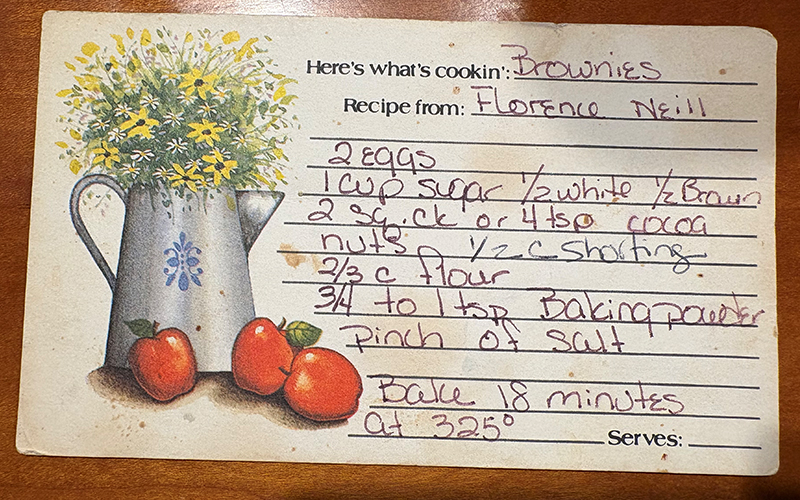 Here's what's cookin': Brownies
Recipe from: Florence Neill
2 eggs
1 cup sugar 1/2 white 1/2 Brown
2 sq. ck or 4 tsp cocoa
nuts 1/2 c shorting
2/3 c flour
3/4 to 1 tsp Baking powder
pinch of salt
Bake 18 minutes
at 325°
Serves: